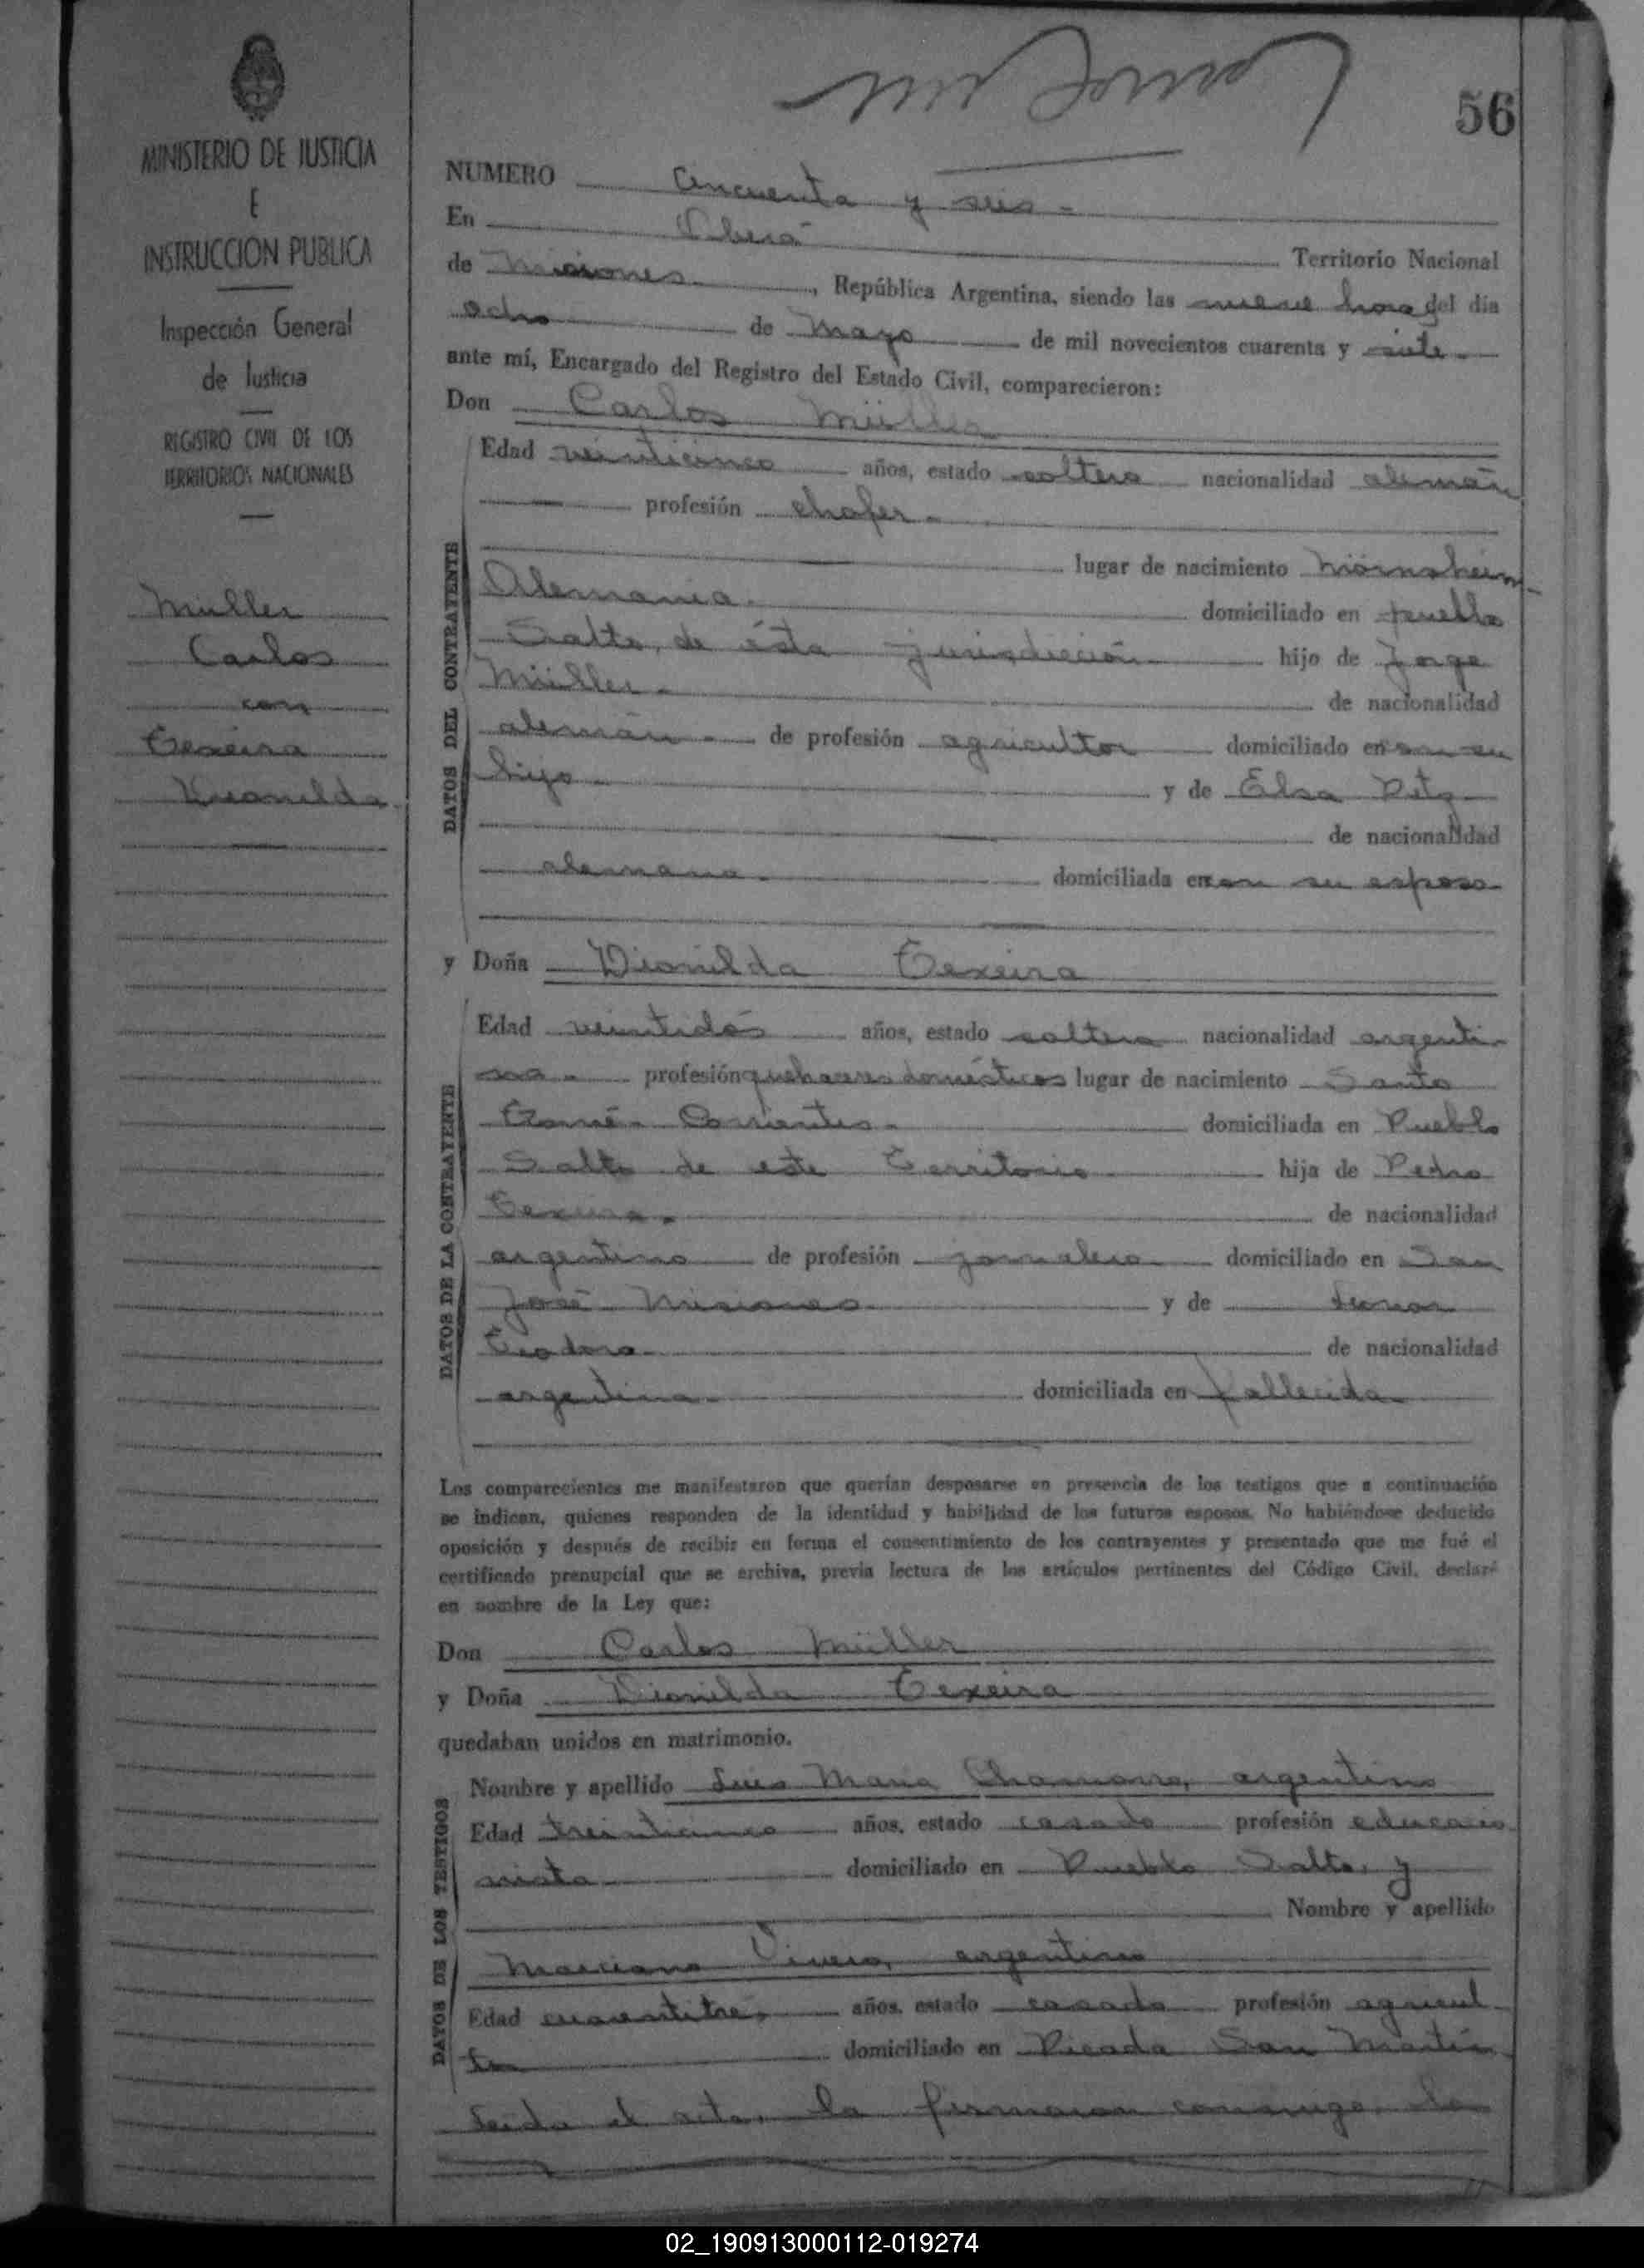 56
MINISTERIO DE JUSTICIA
E
INSTRUCCION PUBLICA
Inspección General
de Justicia
REGISTRO CIVIL DE LOS
TERRITORIOS NACIONALES
Müller
Carlos
con
Texeira
Dionilda
NUMERO cincuenta y seis
En Oberá Territorio Nacional
de Misiones, República Argentina, siendo las nueve horas del día
ocho de Mayo de mil novecientos cuarenta y siete
ante mí, Encargado del Registro del Estado Civil, comparecieron:
Don Carlos Müller
DATOS DEL CONTRAYENTE
Edad veinticinco años, estado soltero nacionalidad alemán
profesión chofer
lugar de nacimiento Mörnsheim
Alemania domiciliado en pueblo
Salto, de ésta jurisdicción hijo de Jorge
Müller de nacionalidad
alemán de profesión agricultor domiciliado en con su
hijo y de Elsa
de nacionalidad
alemana domiciliada en con su esposo
y Doña Dionilda Texeira
DATOS DE LA CONTRAYENTE
Edad veintidós años, estado soltera nacionalidad argenti-
na profesión quehaceres domésticos lugar de nacimiento Santo
Tomé - Corrientes domiciliada en Pueblo
Salto de este Territorio hija de Pedro
Texeira de nacionalidad
argentino de profesión jornalero domiciliado en San
José - Misiones y de Leonor
Teodoro de nacionalidad
argentina domiciliada en fallecida
Los comparecientes me manifestaron que querían desposarse en presencia de los testigos que a continuación
se indican, quienes responden de la identidad y habilidad de los futuros esposos. No habiéndose deducido
oposición y después de recibir en forma el consentimiento de los contrayentes y presentado que me fué el
certificado prenupcial que se archiva, previa lectura de los artículos pertinentes del Código Civil, declaré
en nombre de la Ley que:
Don Carlos Müller
y Doña Dionilda Texeira
quedaban unidos en matrimonio.
DATOS DE LOS TESTIGOS
Nombre y apellido Luis Maria Chamorro, argentino
Edad treinticinco años, estado casado profesión educacio-
nista domiciliado en Pueblo Salto, y
Nombre y apellido
Marciano argentino
Edad cuarentitrés años, estado casado profesión agricul-
tor domiciliado en Picada San Martín
Leida el acta, la firmaron conmigo, los
02_190913000112-019274